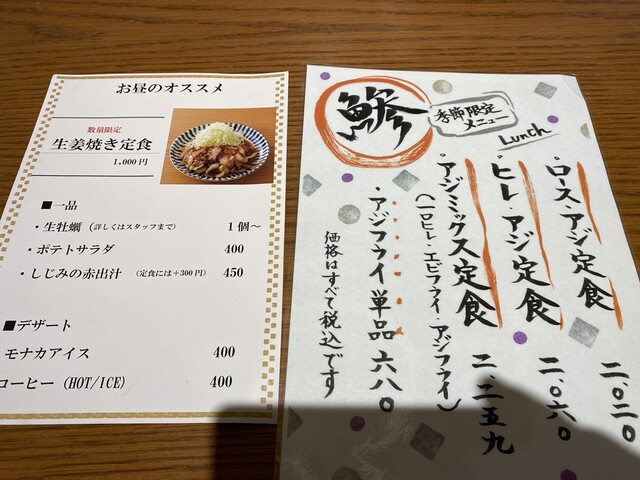 お昼のオススメ
数量限定
生姜焼き定食
1,000円
■一品
・生牡蠣（詳しくはスタッフまで） 1個～
・ポテトサラダ 400
・しじみの赤出汁 （定食には＋300円） 450
■デザート
モナカアイス 400
コーヒー（HOT/ICE） 400
鯵
季節限定
メニュー
Lunch
・ロース・アジ定食 二、〇二〇
・ヒレ・アジ定食 二、〇六〇
・アジミックス定食 二、二五九
（一口ヒレ・エビフライ・アジフライ）
・アジフライ単品 六八〇
価格はすべて税込です